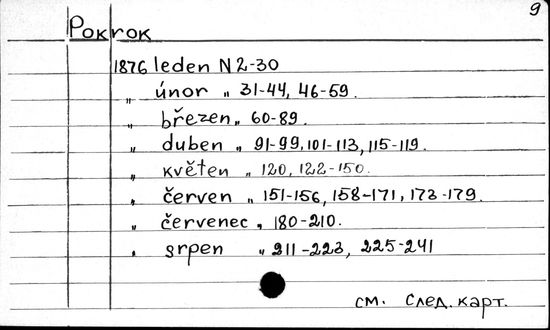 9
Pokrok
1876 leden N 2-30
„ únor „ 31-44, 46-59.
„ březen „ 60-89.
„ duben „ 91-99, 101-113, 115-119.
„ květen „ 120, 122-150.
„ červen „ 151-156, 158-171, 173-179.
„ červenec „ 180-210.
„ srpen „ 211-223, 225-241
см. след. карт.